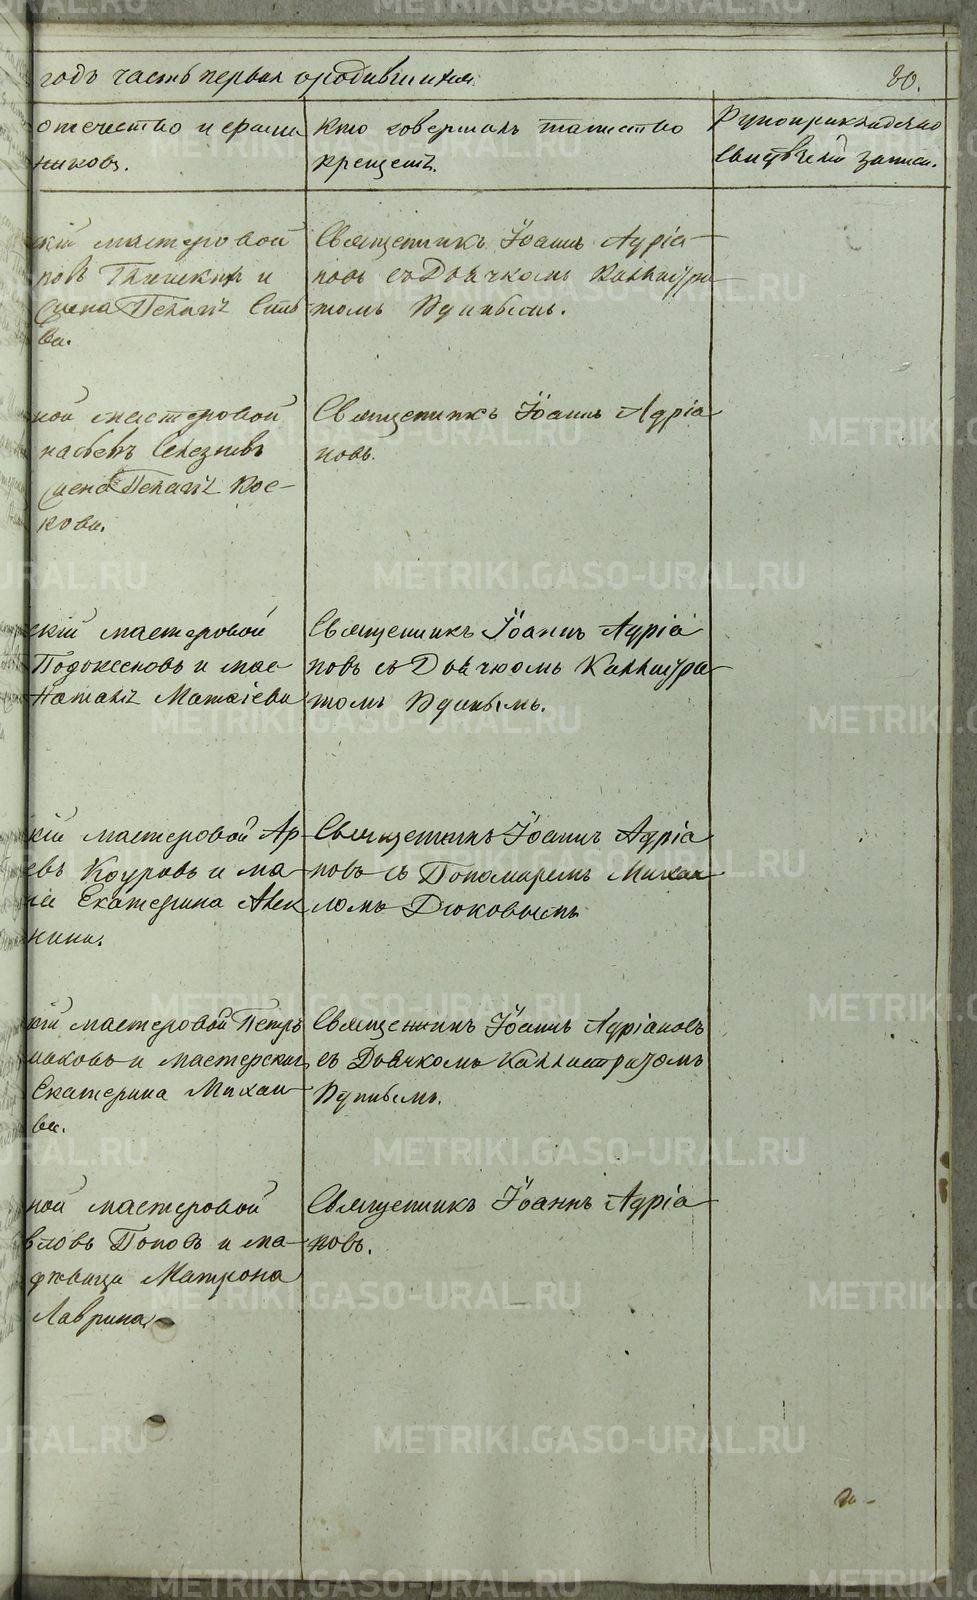 годъ часть первая о родившихся.
80.
отечество и фами
ніиковъ.
кто совершалъ таинство
крещенія.
Рукоприкладство
свидѣтелей записи.
скій мастеровой
новъ и
жена Пелагія Силь
ва.
Священникъ Іоаннъ Адріа
новъ съ Дьячкомъ Каллистра
томъ
ной мастеровой
насьевъ Селезневъ
жена Пелагія Кос-
кова.
Священникъ Іоаннъ Адріа
новъ.
скій мастеровой
Подоксеновъ и мас-
Наталія Матвіева
Священникъ Іоаннъ Адріа
новъ съ Дьячкомъ Каллистра
томъ
кій мастеровой Ар
евъ Коуровъ и ма-
Екатерина Алек
нина.
Священникъ Іоаннъ Адріа
новъ съ Пономаремъ Михаи
ломъ Дюковымъ
кій мастеровой Петръ
маковъ и мастерская
Екатерина Михаи
ва.
Священникъ Іоаннъ Адріановъ
съ Дьячкомъ Каллистратомъ
ной мастеровой
вловъ Поповъ и ма-
Матрона
Лаврина
Священникъ Іоаннъ Адріа
новъ.
METRIKI.GASO-URAL.RU